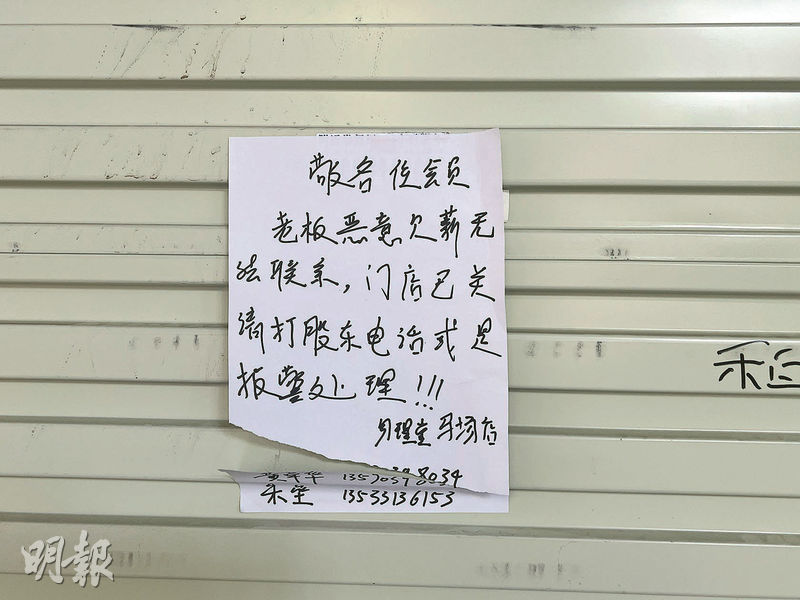 敬各位会员
老板恶意欠薪无
法联系，门店已关
请打股东电话或是
报警处理!!!
理堂 马场店
8034
13533136153
明報